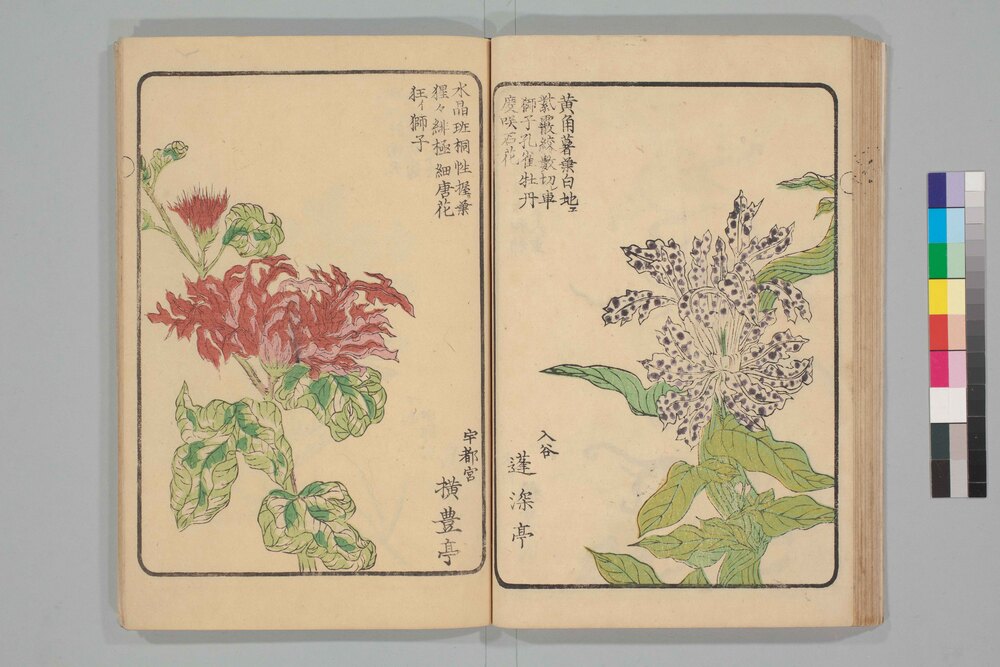 黄角薯葉白地ェ
紫霰絞數切車
獅子孔雀牡丹
度咲石花
入谷
蓬深亭
水晶斑桐性握葉
猩々緋極細唐花
狂イ獅子
宇都宮
横豊亭